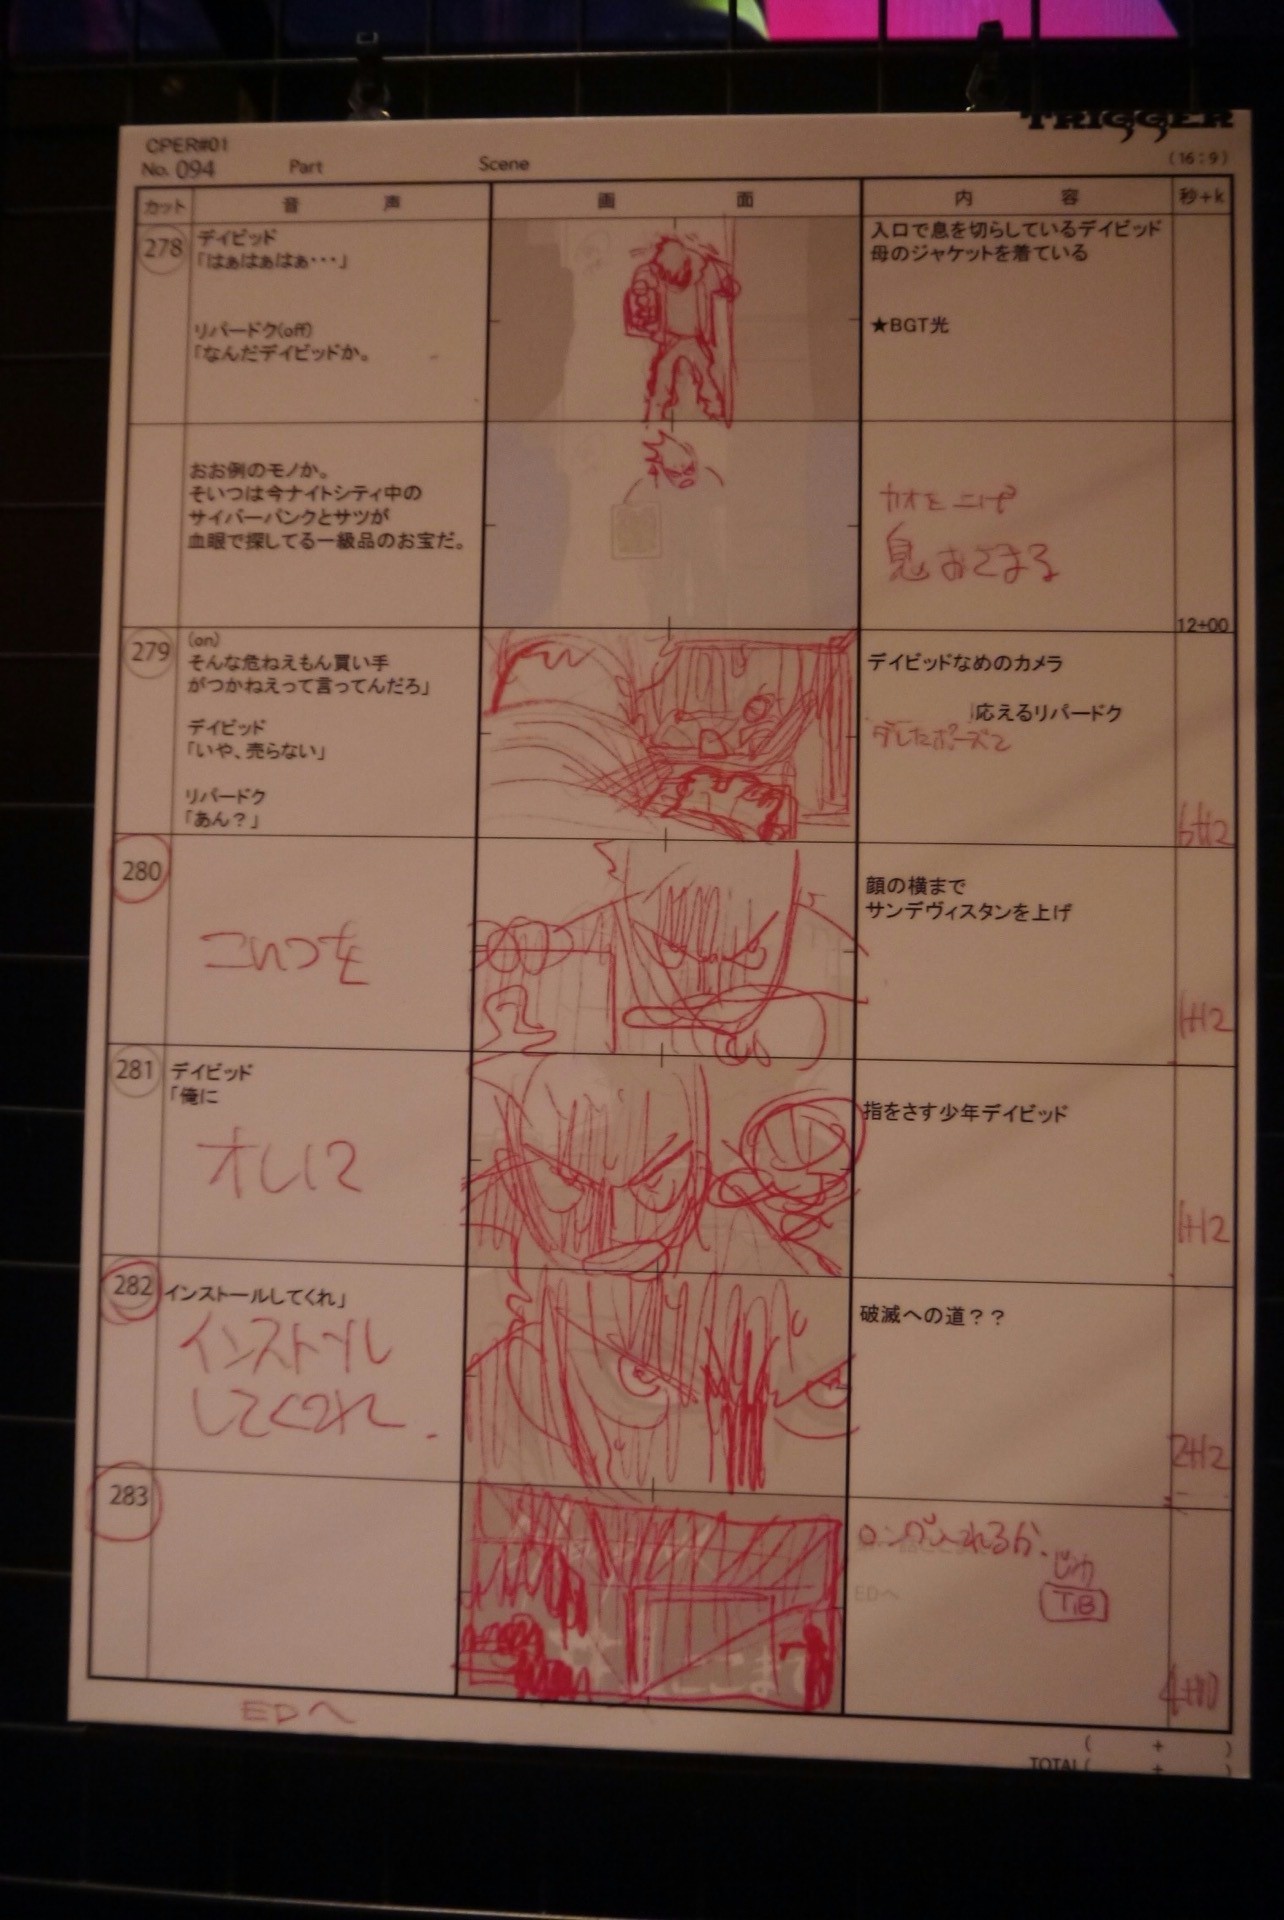 TRIGGER
CPER#01
(16:9)
No. 094 Part Scene
カット 音 声 画 面 内 容 秒+k
278
デイビッド
「はぁはぁはぁ・・・」
リパードク(off)
「なんだデイビッドか。
入口で息を切らしているデイビッド
母のジャケットを着ている
★BGT光
おお例のモノか。
そいつは今ナイトシティ中の
サイバーパンクとサツが
血眼で探してる一級品のお宝だ。
カオを上げ
息おさまる
12+00
279
(on)
そんな危ねえもん買い手
がつかねえって言ってんだろ」
デイビッド
「いや、売らない」
リパードク
「あん？」
デイビッドなめのカメラ
応えるリパードク
ダレたポーズで
6+12
280
こいつを
顔の横まで
サンデヴィスタンを上げ
1+12
281
デイビッド
「俺に
オレに
指をさす少年デイビッド
1+12
282
インストールしてくれ」
インストール
してくれ.
破滅への道？？
2+12
283
ロング入れるか.
EDへ
T.B
ここまで
EDへ
( + )
TOTAL( + )